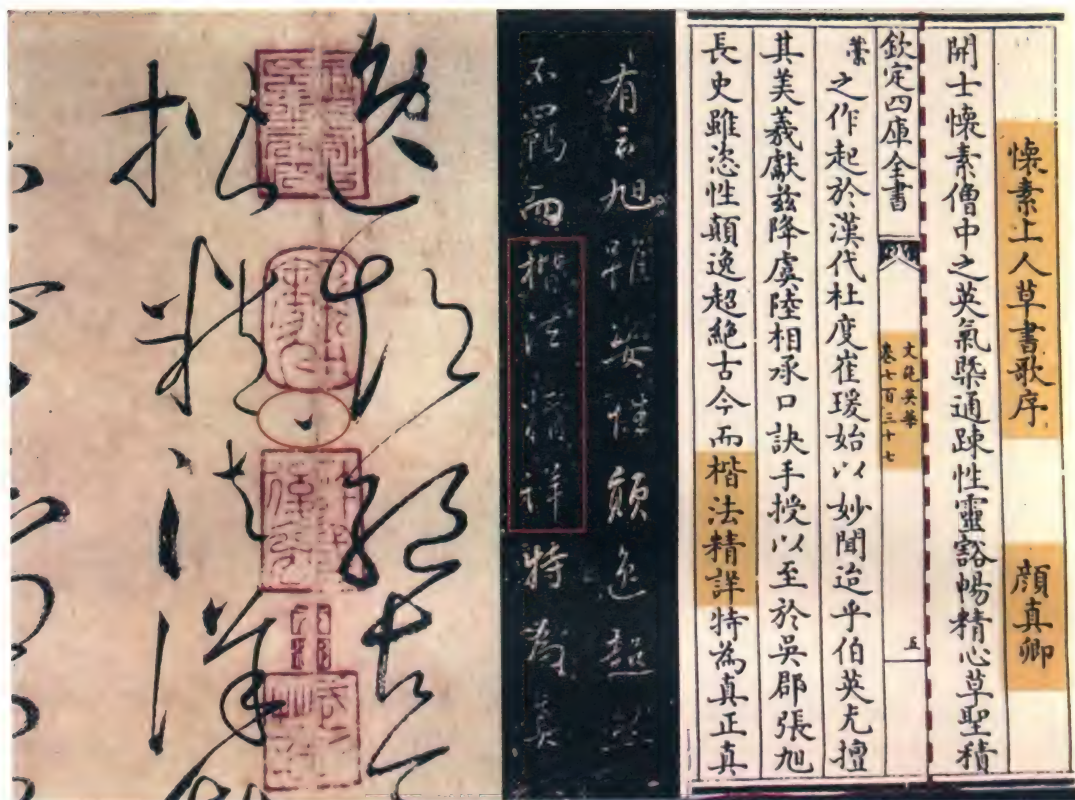 懷素上人草書歌序 顔真卿
開士懷素僧中之英氣槩通疎性靈豁暢精心草聖積
欽定四庫全書 文苑英華 卷七百三十七 五
之作起於漢代杜度崔瑗始以妙聞迨乎伯英尤擅
其美羲獻兹降虞陸相承口訣手授以至於吳郡張旭
長史雖恣性顛逸超絶古今而楷法精詳特為真正真
有云旭雖姿性顛逸超然
不羈而楷法精詳特為真
逸超絶古今
楷精法詳